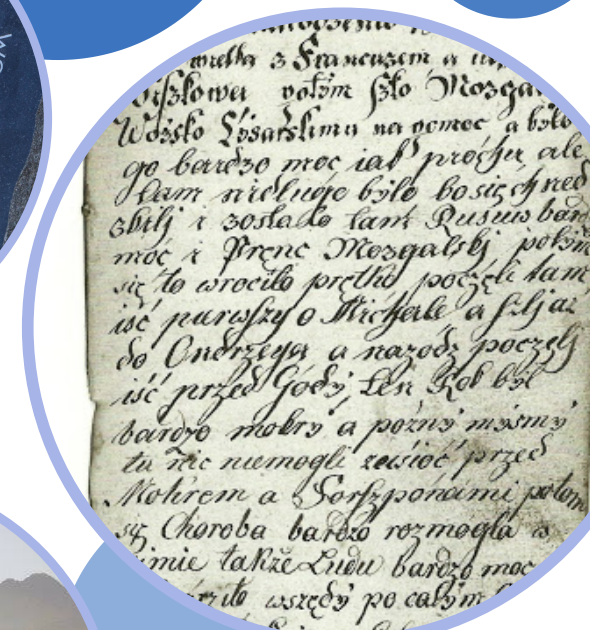 wielka z Francuzem a
potym szło Mozgal
Woysko Cysarskimu na pomoc a było
go bardzo moc iak prochu ale
tam niedługo było bo sich ned
zbilj i zostało tam Rusuw bar
moc i Prenc Mozgalskj potym
się to wrociło prętko poczęli tam
iść purwszy o Michale a szlj aż
do Ondrzeya a nazody poczęlj
iść przed Gody, ten Rok był
bardzo mokry a pozny mysmy
tu nic niemogli zasioć przed
Mokrem a Forszponami potom
się Choroba bardzo rozmogła w
zimie także Ludu bardzo moc
wszędy po całym